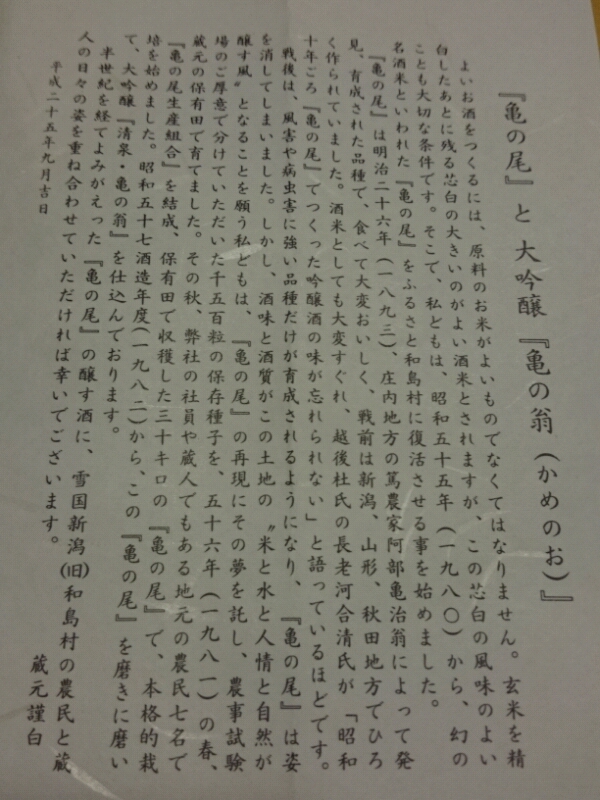 『亀の尾』と大吟醸『亀の翁(かめのお)』
よいお酒をつくるには、原料のお米がよいものでなくてはなりません。玄米を精
白したあとに残る芯白の大きいのがよい酒米とされますが、この芯白の風味のよい
ことも大切な条件です。そこで、私どもは、昭和五十五年(一九八〇)から、幻の
名酒米といわれた『亀の尾』をふるさと和島村に復活させる事を始めました。
『亀の尾』は明治二十六年(一八九三)、庄内地方の篤農家阿部亀治翁によって発
見、育成された品種で、食べて大変おいしく、戦前は新潟、山形、秋田地方でひろ
く作られていました。酒米としても大変すぐれ、越後杜氏の長老河合清氏が「昭和
十年ごろ『亀の尾』でつくった吟醸酒の味が忘れられない」と語っているほどです。
戦後は、風害や病虫害に強い品種だけが育成されるようになり、『亀の尾』は姿
を消してしまいました。しかし、酒味と酒質がこの土地の〝米と水と人情と自然が
醸す風〟となることを願う私どもは、『亀の尾』の再現にその夢を託し、農事試験
場のご厚意で分けていただいた千五百粒の保存種子を、五十六年(一九八一)の春、
蔵元の保有田で育てました。その秋、弊社の社員や蔵人でもある地元の農民七名で
『亀の尾生産組合』を結成、保有田で収穫した三十キロの『亀の尾』で、本格的栽
培を始めました。昭和五十七酒造年度(一九八二)から、この『亀の尾』を磨きに磨い
て、大吟醸『清泉・亀の翁』を仕込んでおります。
半世紀を経てよみがえった『亀の尾』の醸す酒に、雪国新潟(旧)和島村の農民と蔵
人の日々の姿を重ね合わせていただければ幸いでございます。
平成二十五年九月吉日
蔵元謹白